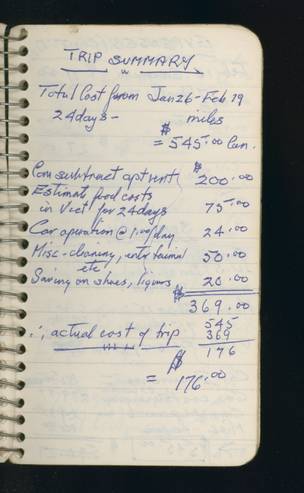 TRIP SUMMARY
Total Cost from Jan 26 - Feb 19
24 days - miles
= $545.00 Can.
Can subtract apt rent $200.00
Estimate food costs
in Vict for 24 days 75.00
Car operation @ 1.00/day 24.00
Misc - cleaning, entertainmt 50.00
etc
Saving on shoes, liquors 20.00
$369.00
545
∴ actual cost of trip 369
176
= $176.00